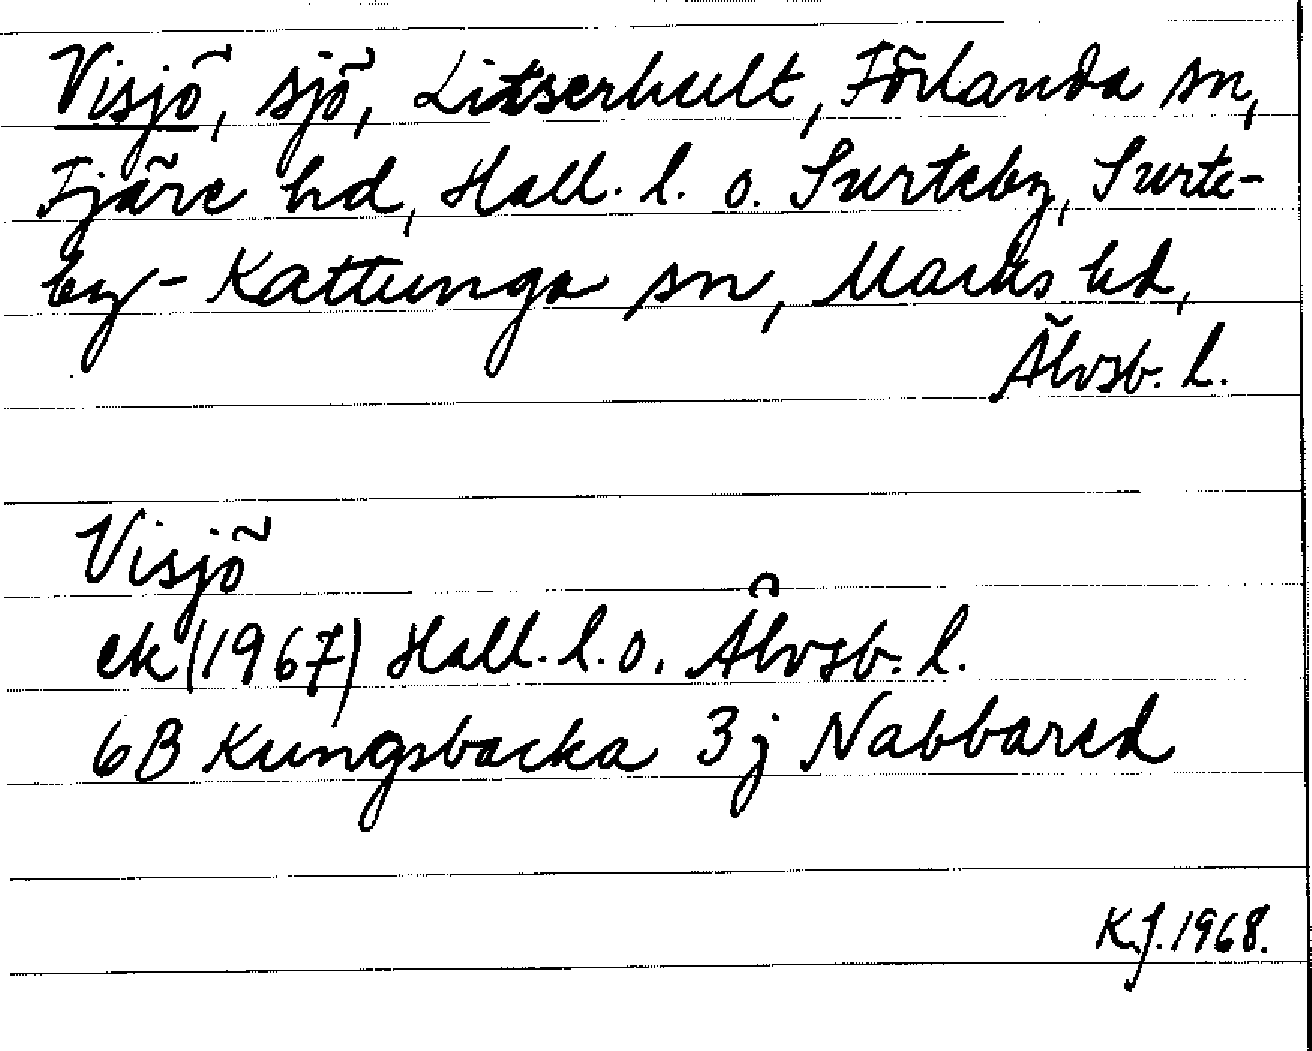 Visjö, sjö, Litserhult, Förlanda sn,
Fjäre hd, Hall. l. o. Surteby, Surte-
by-Kattunga sn, Marks hd,
Älvsb. l.
Visjö
ek (1967) Hall. l. o. Älvsb. l.
6B Kungsbacka 3j Nabbared
K.J. 1968.